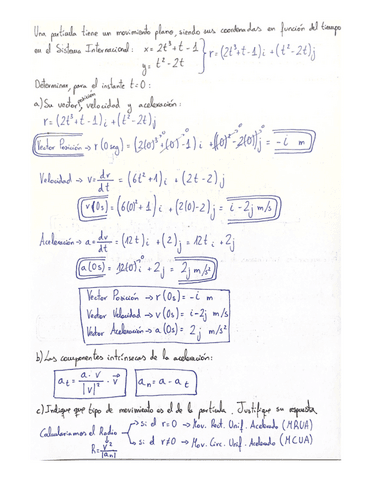 Una partícula tiene un movimiento plano, siendo sus coordenadas en función del tiempo
en el Sistema Internacional: x = 2t³+t-1 } r = (2t³+t-1)i + (t²-2t)j
y = t²-2t
Determinar, para el instante t=0:
a) Su vector posición, velocidad y aceleración:
r = (2t³+t-1)i + (t²-2t)j
Vector Posición → r(0seg) = (2(0)³+(0)-1)i + ((0)²-2(0))j = -i m
Velocidad → v = dr/dt = (6t²+1)i + (2t-2)j
v(0s) = (6(0)²+1)i + (2(0)-2)j = i-2j m/s
Aceleración → a = dv/dt = (12t)i + (2)j = 12ti + 2j
a(0s) = 12(0)i + 2j = 2j m/s²
Vector Posición → r(0s) = -i m
Vector Velocidad → v(0s) = i-2j m/s
Vector Aceleración → a(0s) = 2j m/s²
b) Las componentes intrínsecas de la aceleración:
a_t = a·v/|v|² · v⃗ a_n = a - a_t
c) Indique que tipo de movimiento es el de la partícula. Justifique su respuesta
Calcularíamos el Radio → si el r=0 → Mov. Rect. Unif. Acelerado (MRUA)
R = v²/|a_n| → si el r≠0 → Mov. Circ. Unif. Acelerado (MCUA)